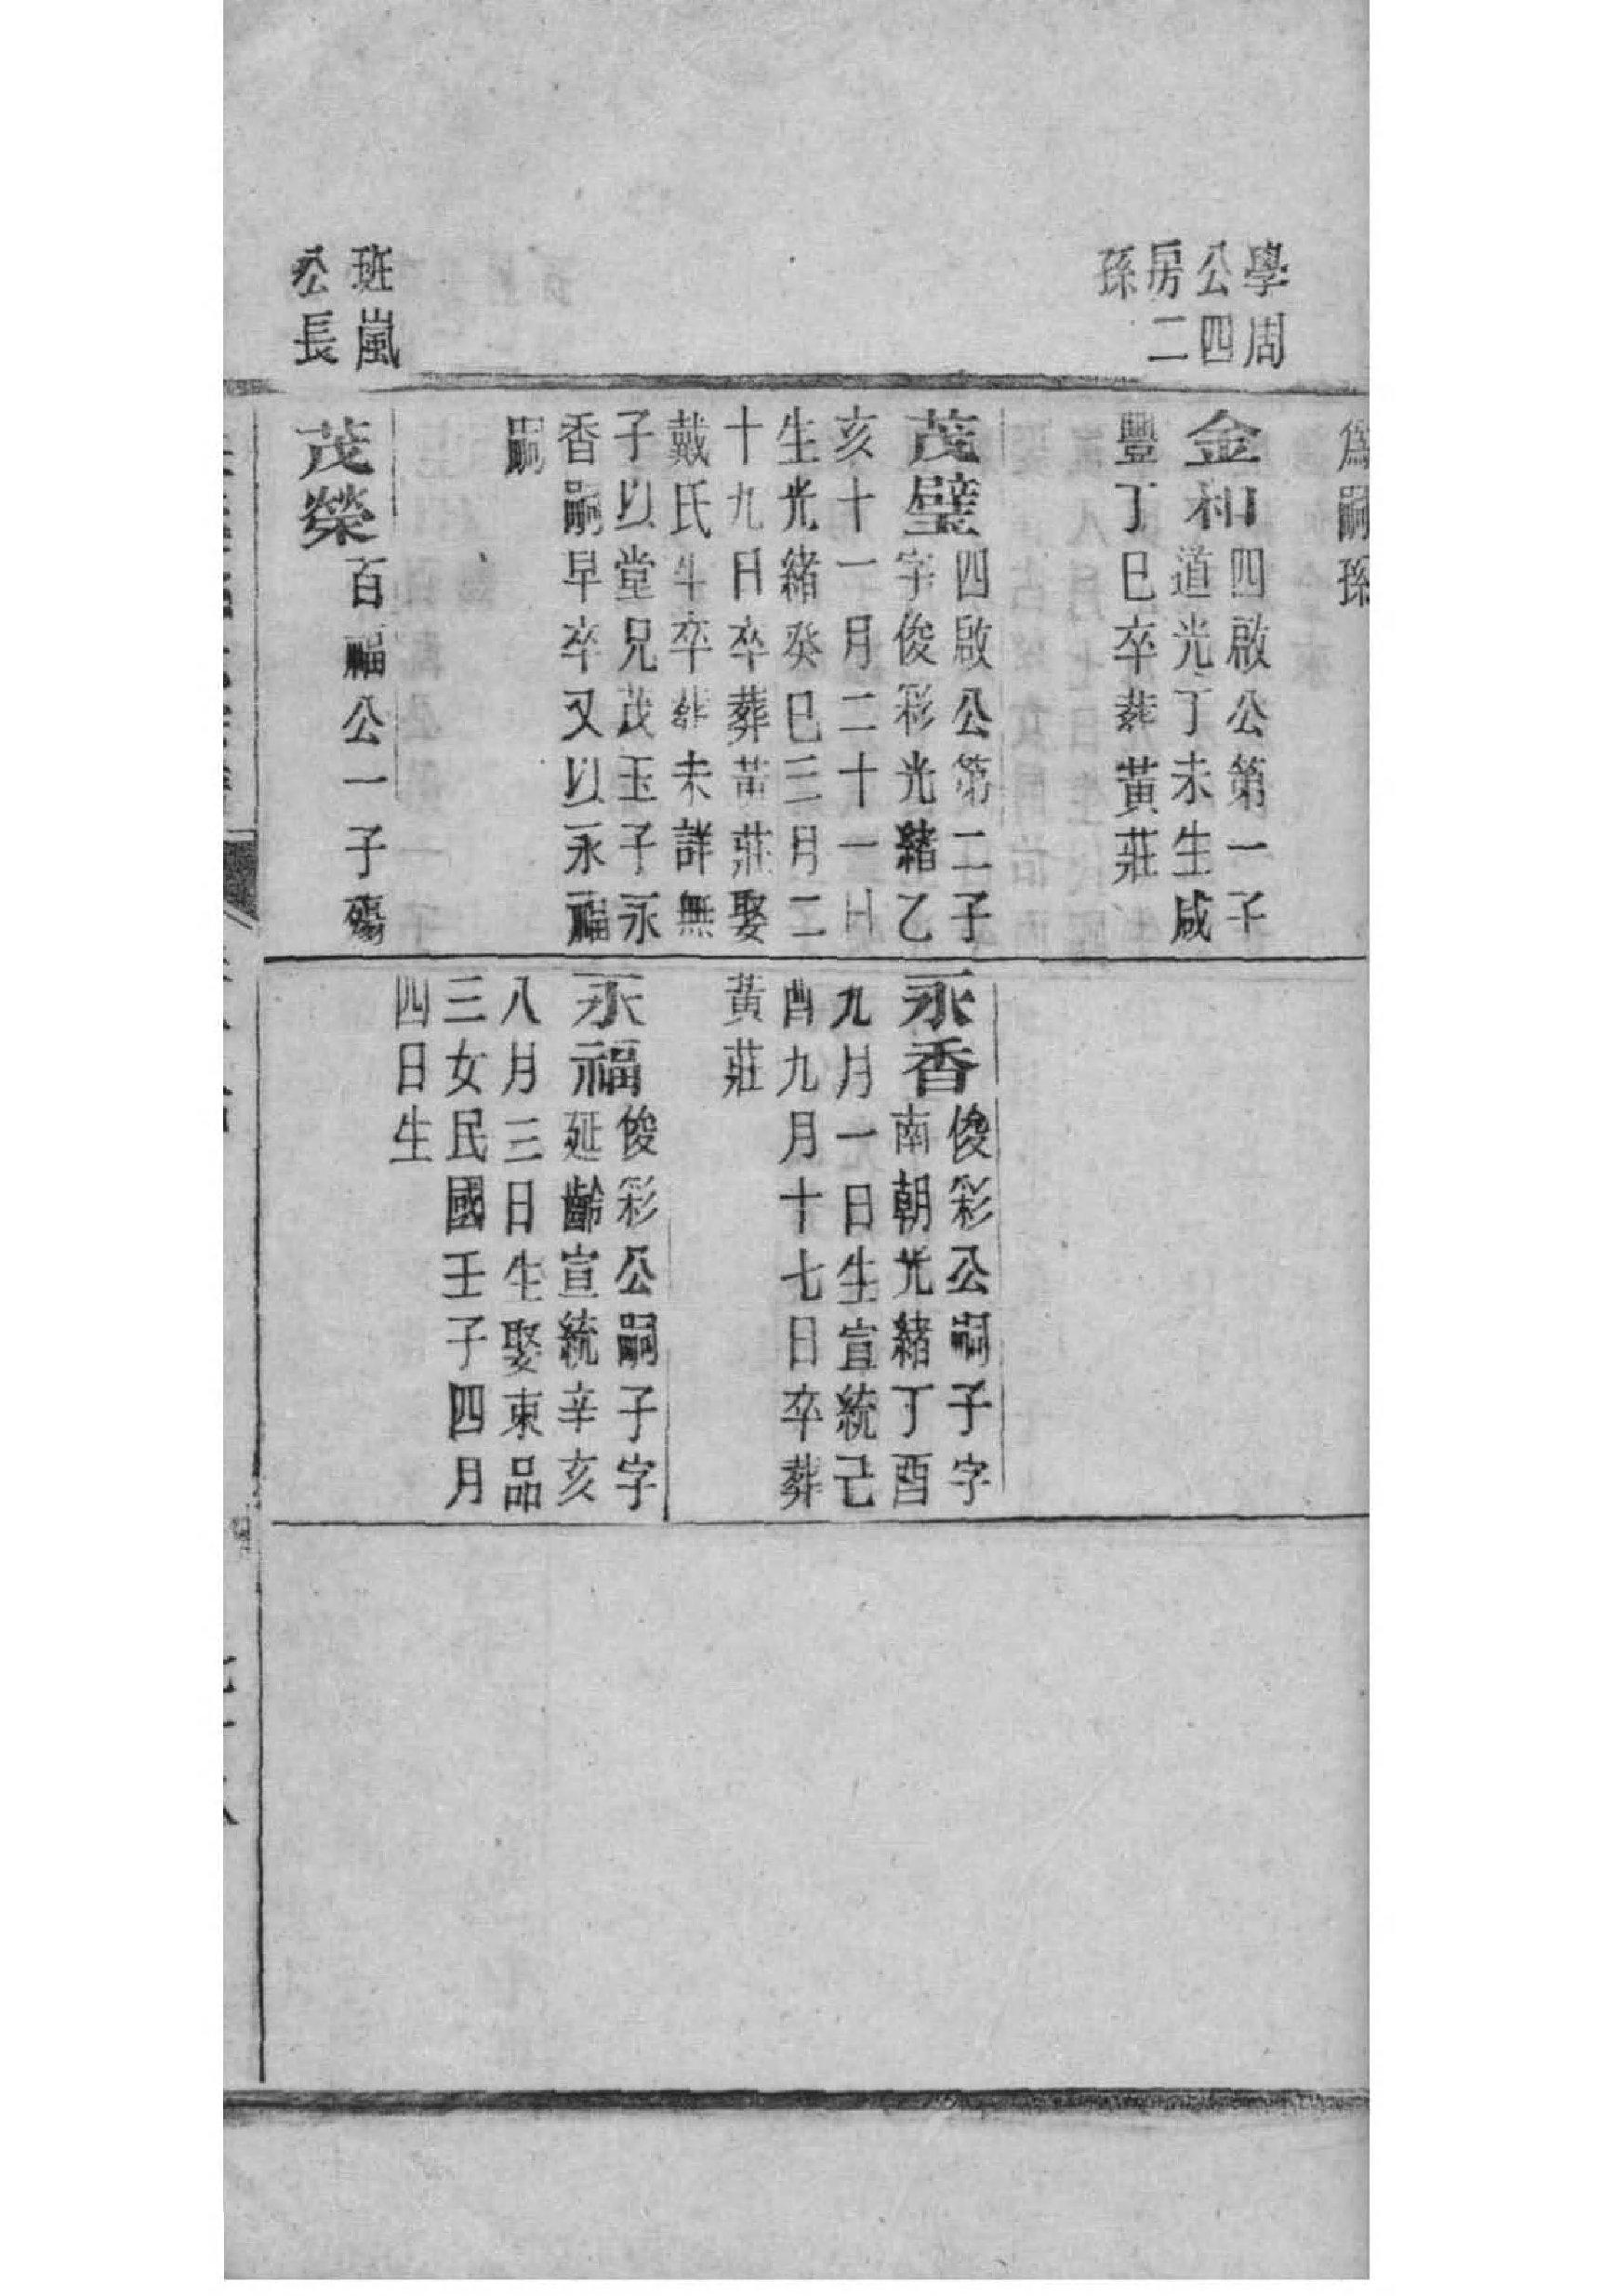 學周
公四
房二
孫
班嵐
公長
爲嗣孫
金和
四啟公第一子
道光丁未生咸
豐丁巳卒葬黃莊
茂璧
四啟公第二子
字俊彩光緒乙
亥十一月二十一日
生光緒癸巳三月二
十九日卒葬黃莊娶
戴氏生卒葬未詳無
子以堂兄茂玉子永
香嗣早卒又以永福
嗣
茂榮
百福公一子殤
永香
俊彩公嗣子字
南朝光緒丁酉
九月一日生宣統己
酉九月十七日卒葬
黃莊
永福
俊彩公嗣子字
延齡宣統辛亥
八月三日生娶東品
三女民國壬子四月
四日生